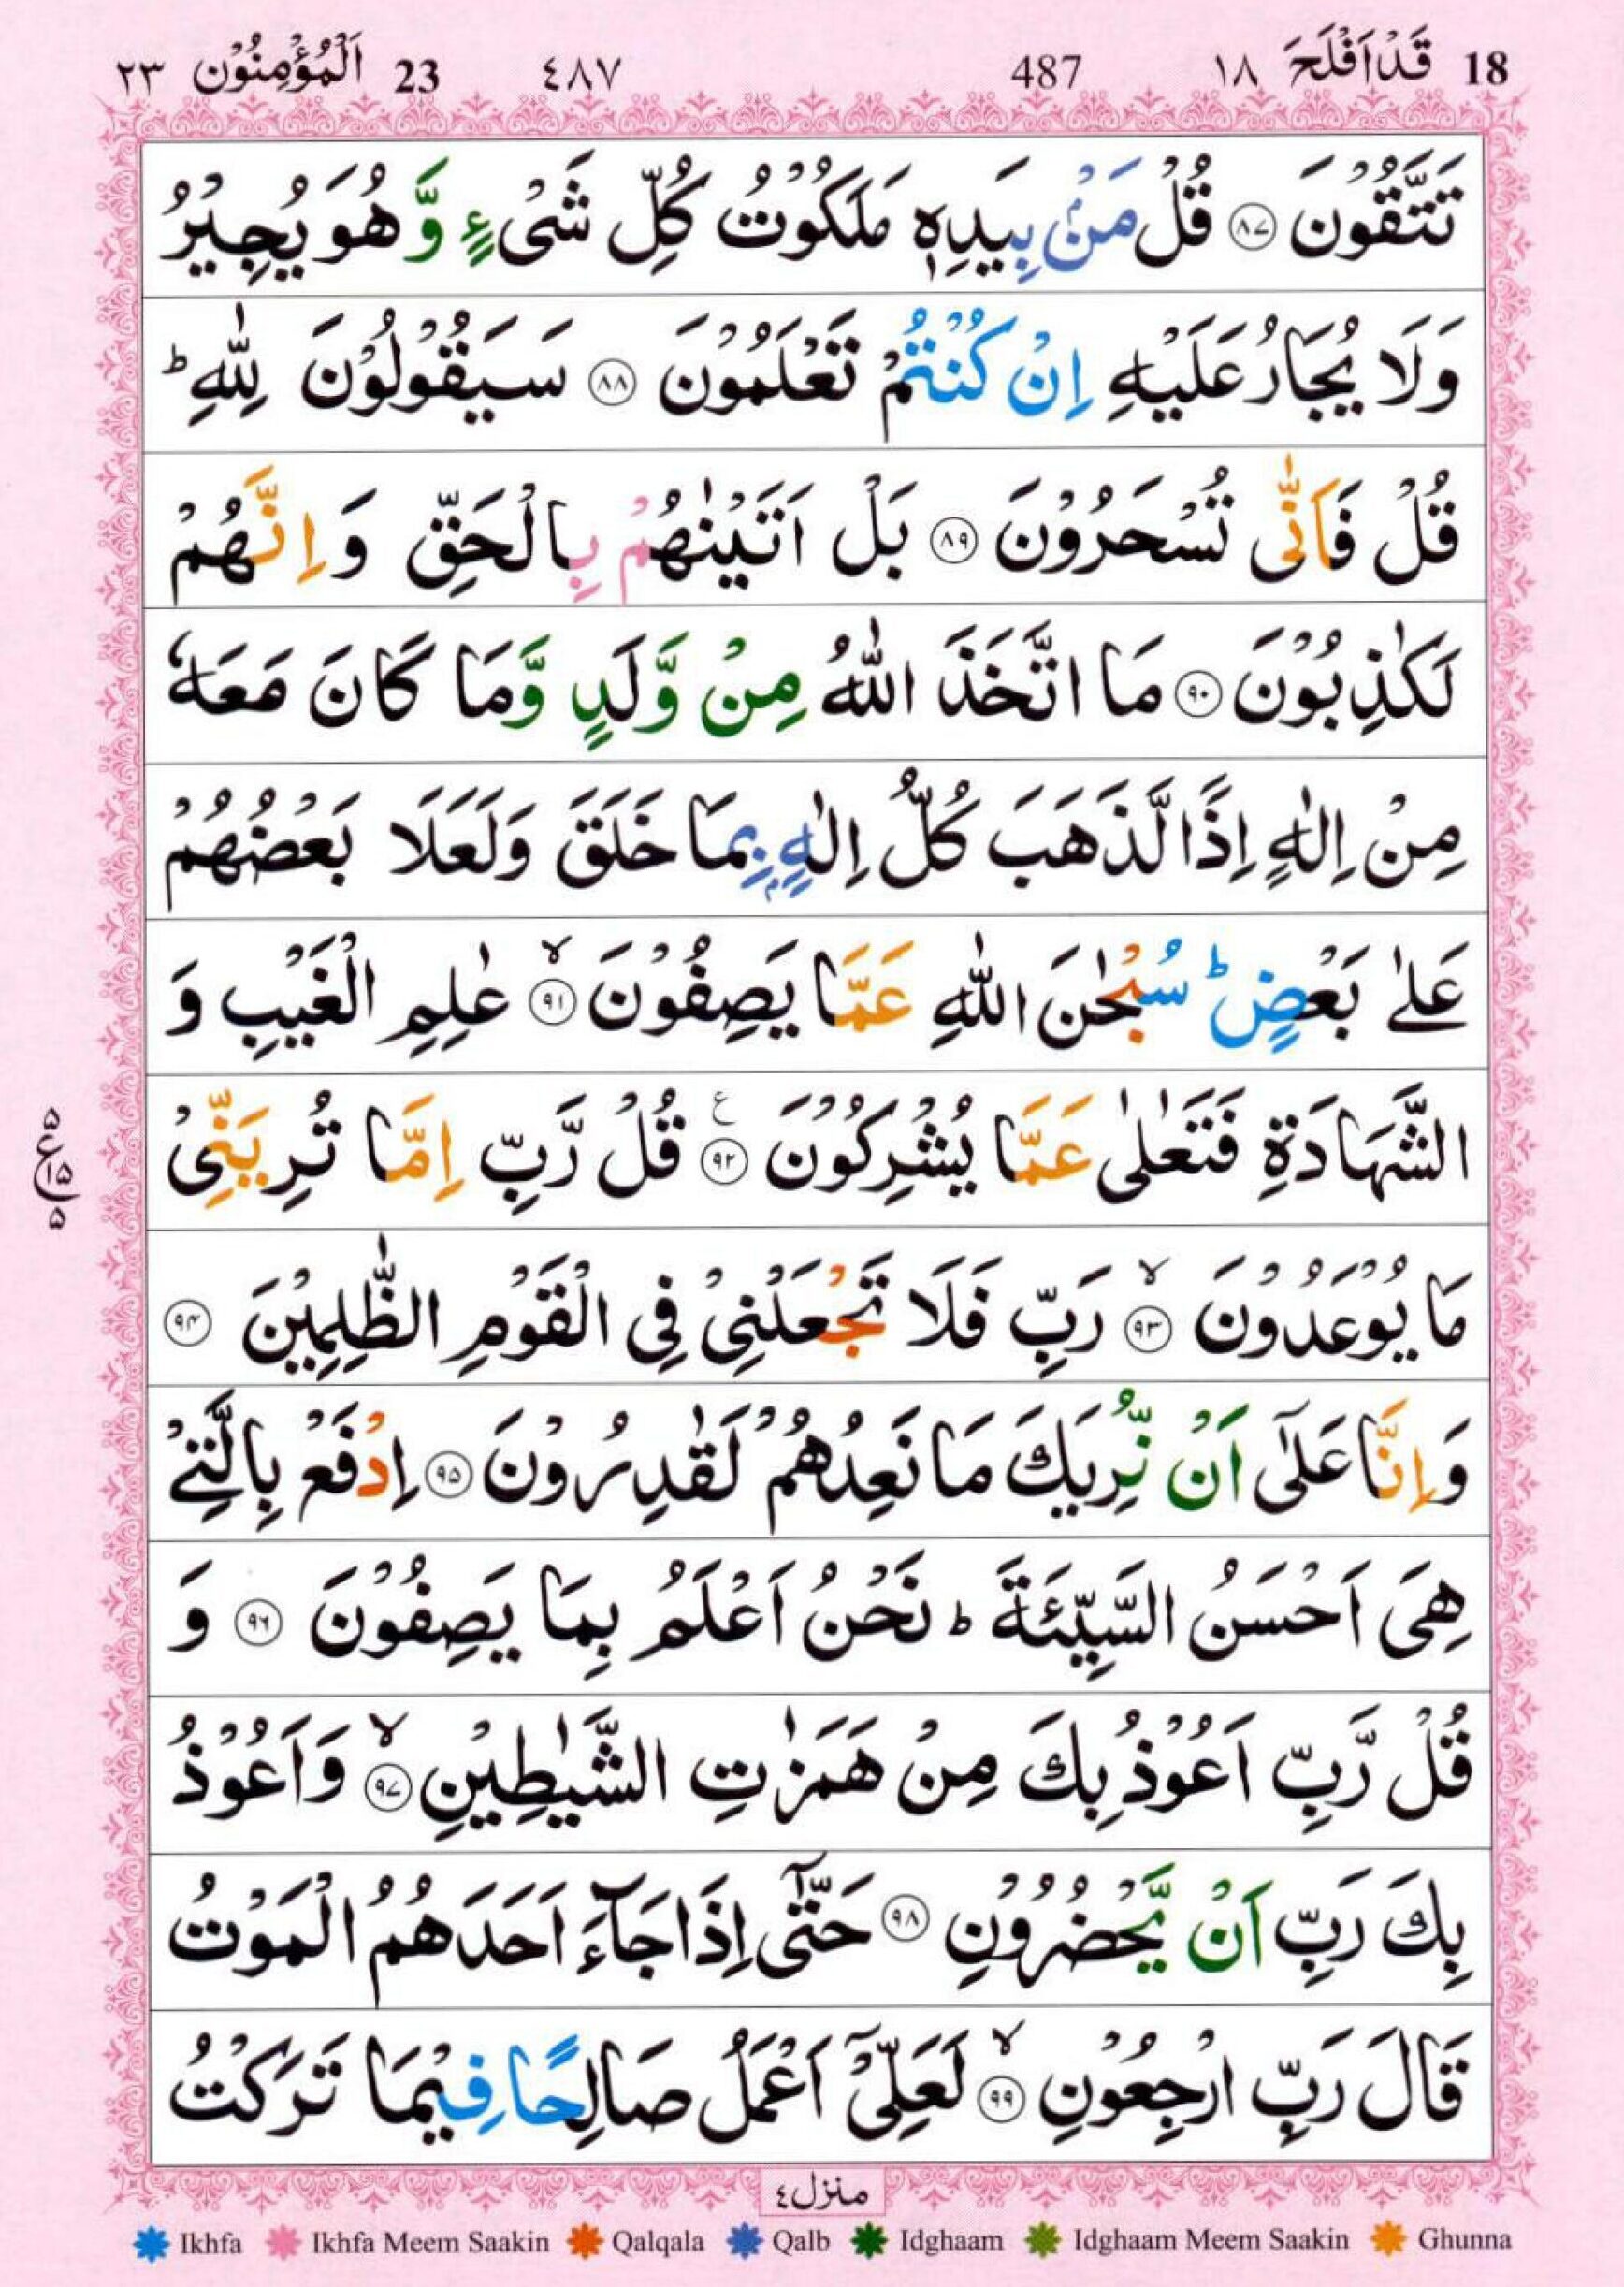 18 قَدْ اَفْلَحَ ١٨ 487 ٤٨٧ 23 اَلْمُؤْمِنُوْن ٢٣
تَتَّقُوْنَ ۝۸۷ قُلْ مَنْۢ بِيَدِهٖ مَلَكُوْتُ كُلِّ شَیْءٍ وَّ هُوَ يُجِيْرُ
وَلَا يُجَارُ عَلَيْهِ اِنْ كُنْتُمْ تَعْلَمُوْنَ ۝۸۸ سَيَقُوْلُوْنَ لِلّٰهِ ؕ
قُلْ فَاَنّٰی تُسْحَرُوْنَ ۝۸۹ بَلْ اَتَيْنٰهُمْ بِالْحَقِّ وَ اِنَّهُمْ
لَكٰذِبُوْنَ ۝۹۰ مَا اتَّخَذَ اللّٰهُ مِنْ وَّلَدٍ وَّمَا كَانَ مَعَهٗ
مِنْ اِلٰهٍ اِذًا لَّذَهَبَ كُلُّ اِلٰهٍۭ بِمَا خَلَقَ وَلَعَلَا بَعْضُهُمْ
عَلٰی بَعْضٍ ؕ سُبْحٰنَ اللّٰهِ عَمَّا يَصِفُوْنَ ۝۹۱ۙ عٰلِمِ الْغَيْبِ وَ
الشَّهَادَةِ فَتَعٰلٰی عَمَّا يُشْرِكُوْنَ ۝۹۲ ع قُلْ رَّبِّ اِمَّا تُرِيَنِّیْ
مَا يُوْعَدُوْنَ ۝۹۳ۙ رَبِّ فَلَا تَجْعَلْنِیْ فِی الْقَوْمِ الظّٰلِمِيْنَ ۝۹۴
وَ اِنَّا عَلٰۤی اَنْ نُّرِيَكَ مَا نَعِدُهُمْ لَقٰدِرُوْنَ ۝۹۵ اِدْفَعْ بِالَّتِیْ
هِیَ اَحْسَنُ السَّيِّئَةَ ؕ نَحْنُ اَعْلَمُ بِمَا يَصِفُوْنَ ۝۹۶ وَ
قُلْ رَّبِّ اَعُوْذُ بِكَ مِنْ هَمَزٰتِ الشَّيٰطِيْنِ ۝۹۷ۙ وَ اَعُوْذُ
بِكَ رَبِّ اَنْ يَّحْضُرُوْنِ ۝۹۸ حَتّٰۤی اِذَا جَآءَ اَحَدَهُمُ الْمَوْتُ
قَالَ رَبِّ ارْجِعُوْنِ ۝۹۹ۙ لَعَلِّیْۤ اَعْمَلُ صَالِحًا فِيْمَا تَرَكْتُ
۵ ع ۱۵ ۵
منزل ٤
Ikhfa Ikhfa Meem Saakin Qalqala Qalb Idghaam Idghaam Meem Saakin Ghunna